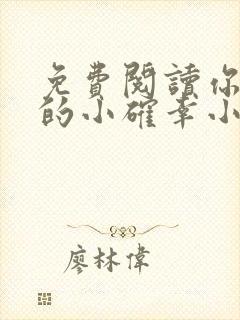 免費閱讀你
的小確幸小
廖林偉